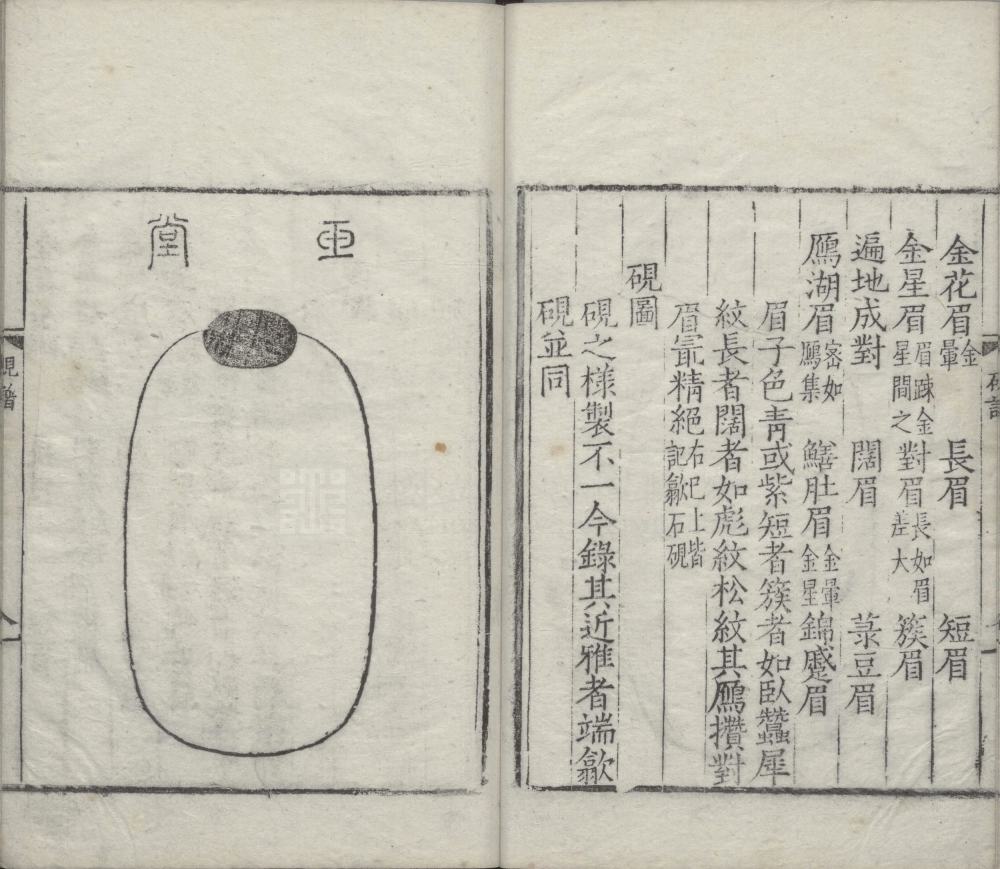 金花眉金暈 長眉 短眉
金星眉眉踈金星間之 對眉長如眉差大 簇眉
遍地成對 闊眉 菉豆眉
鴈湖眉密如鴈集 鱔肚眉金暈金星 錦蹙眉
眉子色青或紫短者簇者如臥蠶犀
紋長者闊者如彪紋松紋其鴈攢對
眉㝡精絕右已上皆記歙石硯
硯圖
硯之樣製不一今錄其近雅者端歙
硯並同
堂